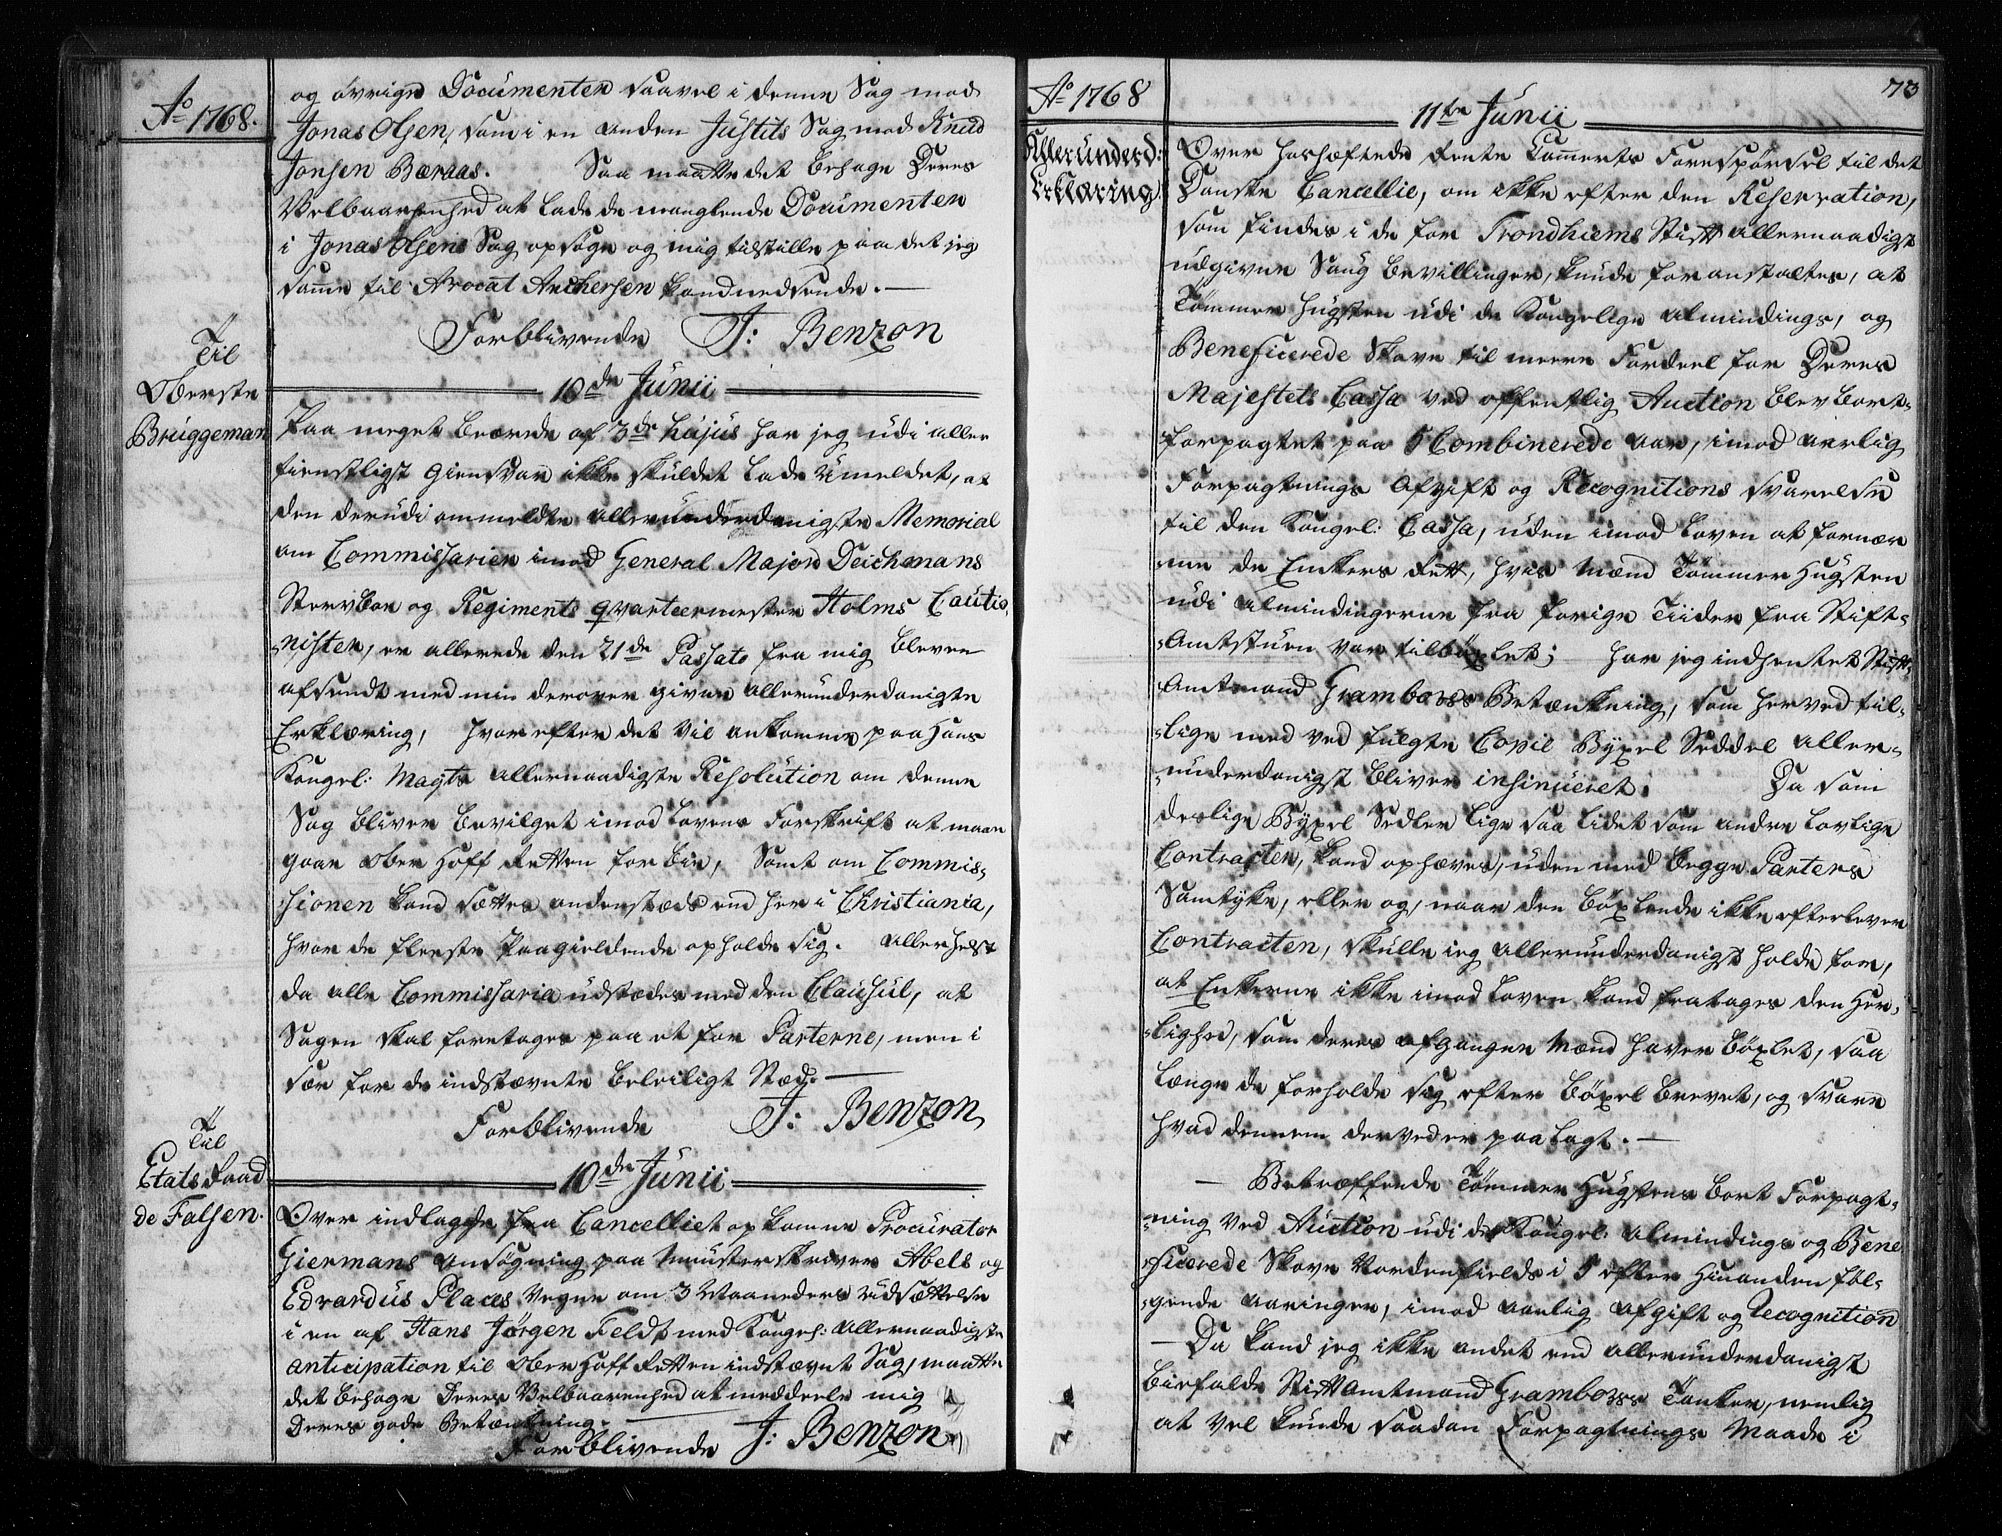 Ao 1768.
og övrige Documenter saavel i denne Sag mod
Jonas Olsen, som i en anden Justits Sag mod Knud
Jonsen Bæraas. Saa maatte det behage Deres
Velbaarenhed at lade de manglende Documenter
i Jonas Olsens Sag opsøge og mig tilstille paa det jeg
samme til Avocat Anchersen kand nedsende.
Forblivende J: Benzon
Til
Oberste
Brüggeman
10de Junii
Paa meget beærede af 3de hujus har jeg udi aller
tienstligst Giensvar ikke skuldet lade Umeldet, at
den derudi ommeldte allerunderdanigste Memorial
om Commissarier imod General Major Deichmans
Stervboe og Regiments qvarteermester Holms Cautio-
-nister, er allerede den 21de Passato fra mig bleven
afsendt med min derover givne allerunderdanigste
Erklæring, hvorefter det vil ankomme paa Hans
Kongel: Mayts allernaadigste Resolution om denne
Sag bliver bevilget imod Lovens Forskrift at maae
gaae Ober Hoff Retten forbie, samt om Commis-
-sionen kand sættes anderstæds end her i Christiania,
hvor de fleeste Paagieldende opholde sig. Allerhelst
da alle Commissaria udstædes med den Clausul, at
Sagen skal foretages paa et for Parterne, men i
sær for de indstævnte beleiligt Stæd.
Forblivende J: Benzon
Til
Etats Raad
de Falsen.
10de Junii
Over indlagde fra Cancelliet opkomne Procurator
Giermans ansøgning paa Mønsterskriver Abels og
Edvardus Places Vegne om 3 Maaneders Udsættelse
i en af Hans Jørgen Feldt med Kongel: allernaadigste
anticipation til Ober Hoff Retten indstævnt Sag, maatte
det behage Deres Velbaarenhed at meddeele mig
Deres gode Betænkning.
Forblivende J: Benzon
Ao 1768
73
11te Junii
Allerunderd:
Erklæring
Over hoshæftede Rente Cammerets Forespørsel til det
Danske Cancellie, om ikke efter den Reservation,
som findes i de for Trondhiems Stift allernaadigst
udgivne Saug bevillinger, kunde foranstaltes, at
Tømmer Hugsten udi de Kongelige Almindings, og
Beneficerede Skove til meere Fordeel for Deres
Majestets Cassa ved offentlig Auction blev bort-
forpagtet paa 5 Combinerede Aar, imod aarlig
Forpagtnings Afgift og Recognitions svarelse
til den Kongel: Cassa, uden imod Loven at fornær
-me de Enkers Rett, hvis Mænd Tømmer Hugsten
udi Almindingerne fra forige Tiider fra Stift-
-Amtstuen var tilbøxlet; har jeg indhentet Stift-
Amtmand Grambows Betænkning, som herved til-
-lige med ved fulgte Copie Byxel Seddel aller-
-underdanigst bliver insinueret. Da som
deslige Byxel Sedler lige saa lidet som andre lovlige
Contracter, kand ophæves, uden med begge Parters
Samtykke, eller og, naar den bøxlende ikke efterlever
Contracten, skulle jeg allerunderdanigst holde for,
at Enkerne ikke imod Loven kand fratages den Her-
-lighed, som deres afgangen Mænd haver bøxlet, saa
længe de forholde sig efter bøxel brevet, og svare
hvad dennem derved er paalagt.
Betræffende Tømmer Hugstens bort Forpagt-
-ning ved Auction udi de Kongel: Almindings og Bene
-ficerede Skove Nordenfields i 5 efter hinanden føl-
-gende Aaringer, imod aarlig Afgift og Recognition
Da kand jeg ikke andet end allerunderdanigst
biefalde Stift Amtmand Grambows Tanker, nemlig
at vel kunde saadan Forpagtnings Maade i